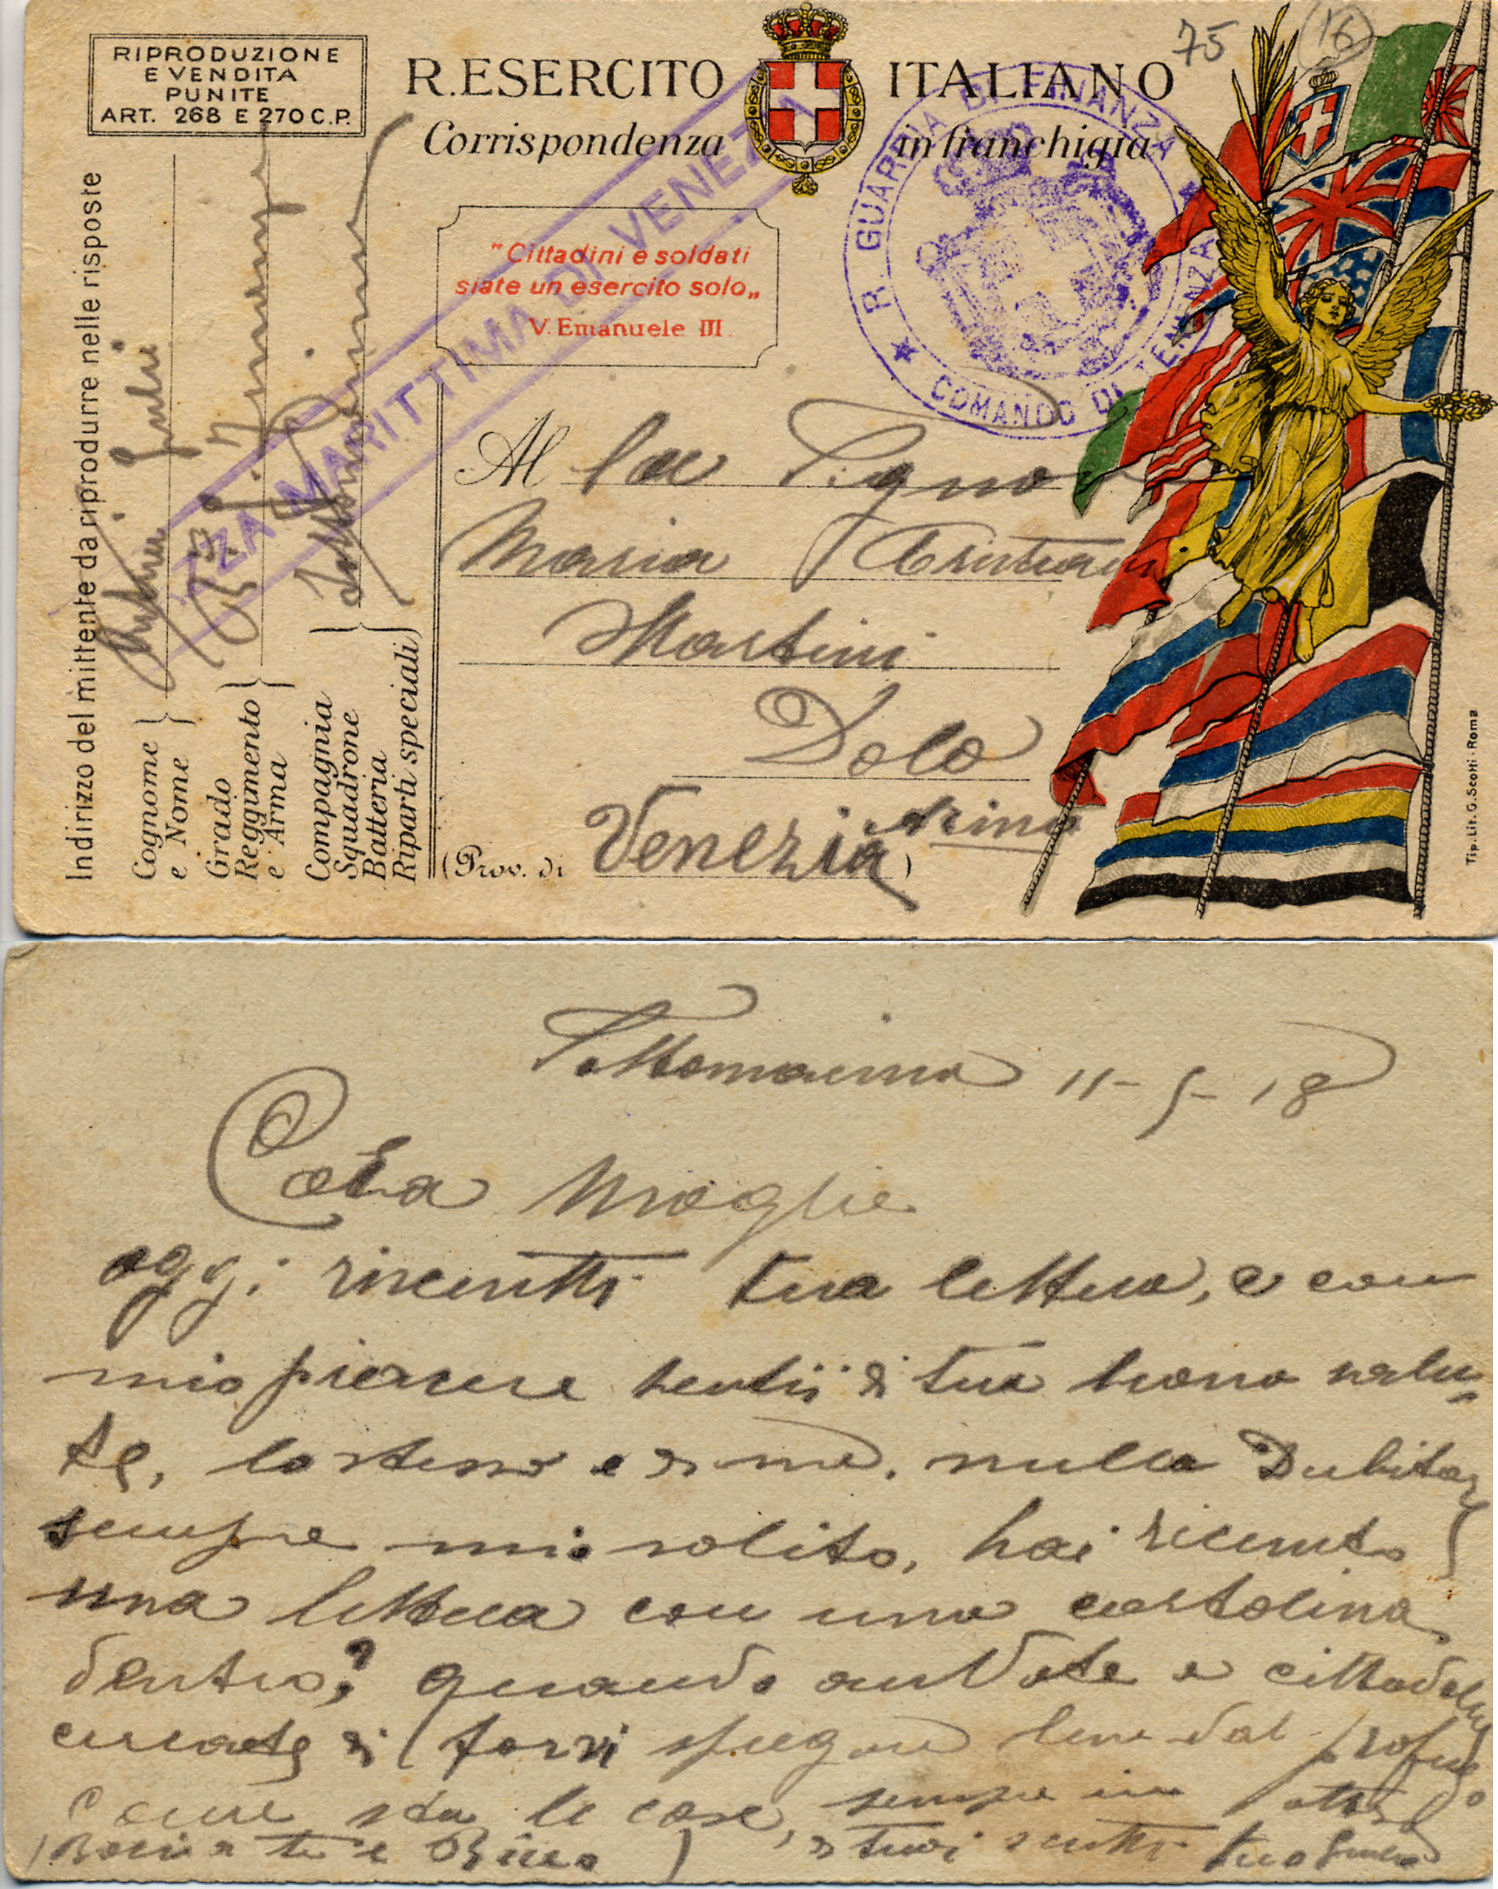 RIPRODUZIONE
E VENDITA
PUNITE
ART. 268 E 270 C.P.
R. ESERCITO ITALIANO
Corrispondenza in franchigia
75
16
"Cittadini e soldati
siate un esercito solo„
V. Emanuele III
R. GUARDIA DI FINANZA
COMANDO DI TENENZA
ZA MARITTIMA DI VENEZIA
Indirizzo del mittente da riprodurre nelle risposte
Cognome
e Nome
Grado
Reggimento
e Arma
Compagnia
Squadrone
Batteria
Riparti speciali
Al la Signora
Maria
Martini
Dolo
(Prov. di Venezia)
Tip. Lit. G. Scotti - Roma
Sottomarina 11-5-18
Cara Moglie
oggi ricevetti tua lettera, e con
mio piacere sentii di tua buona salu-
te, lo stesso e di me, nulla Dubitar
sempre mio solito, hai ricevuto
una lettera con una cartolina
dentro? quando andate a cittadella
cercate di farvi spiegare bene dal profugo
come sta le cose, sempre in
di tuoi tuo